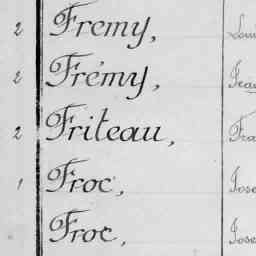 2 Fremy,
2 Frémy,
2 Friteau,
1 Froc, Jose
Froc, Jose